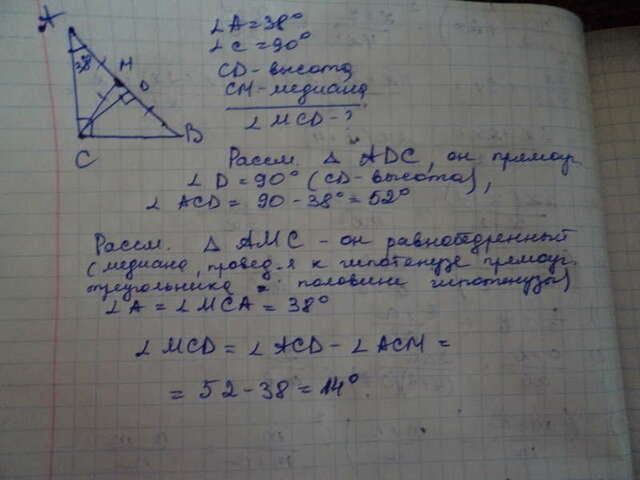 A
38°
M
D
C
B
∠A=38°
∠C=90°
CD-высота
CM-медиана
∠MCD-?
Рассм. △ ADC, он прямоуг.
∠D=90° (CD-высота),
∠ ACD = 90-38°=52°
Рассм. △ AMC - он равнобедренный
(медиана, провед-я к гипотенузе прямоуг.
треугольника = половине гипотенузы)
∠A=∠MCA=38°
∠MCD=∠ACD-∠ACM=
=52-38=14°